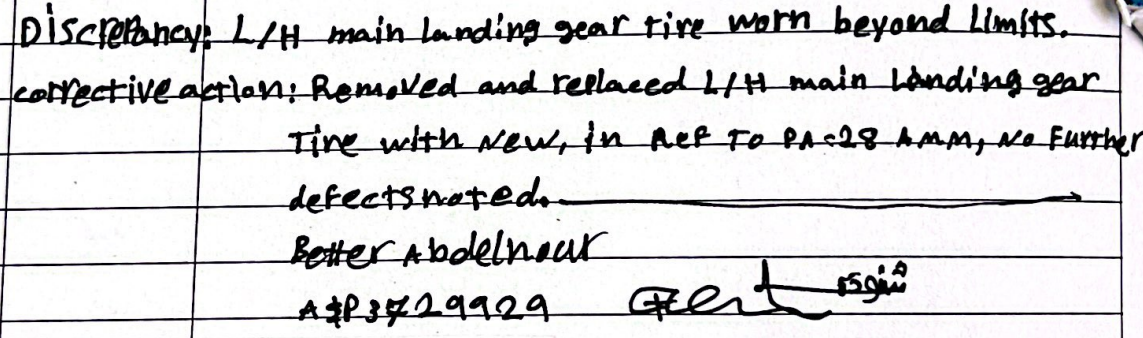 Discrepancy: L/H main landing gear tire worn beyond Limits.
corrective action: Removed and replaced L/H main Landing gear
Tire with New, in Ref To PA-28 AMM, No Further
defects noted.
Better Abdelnour
A&P 3729929